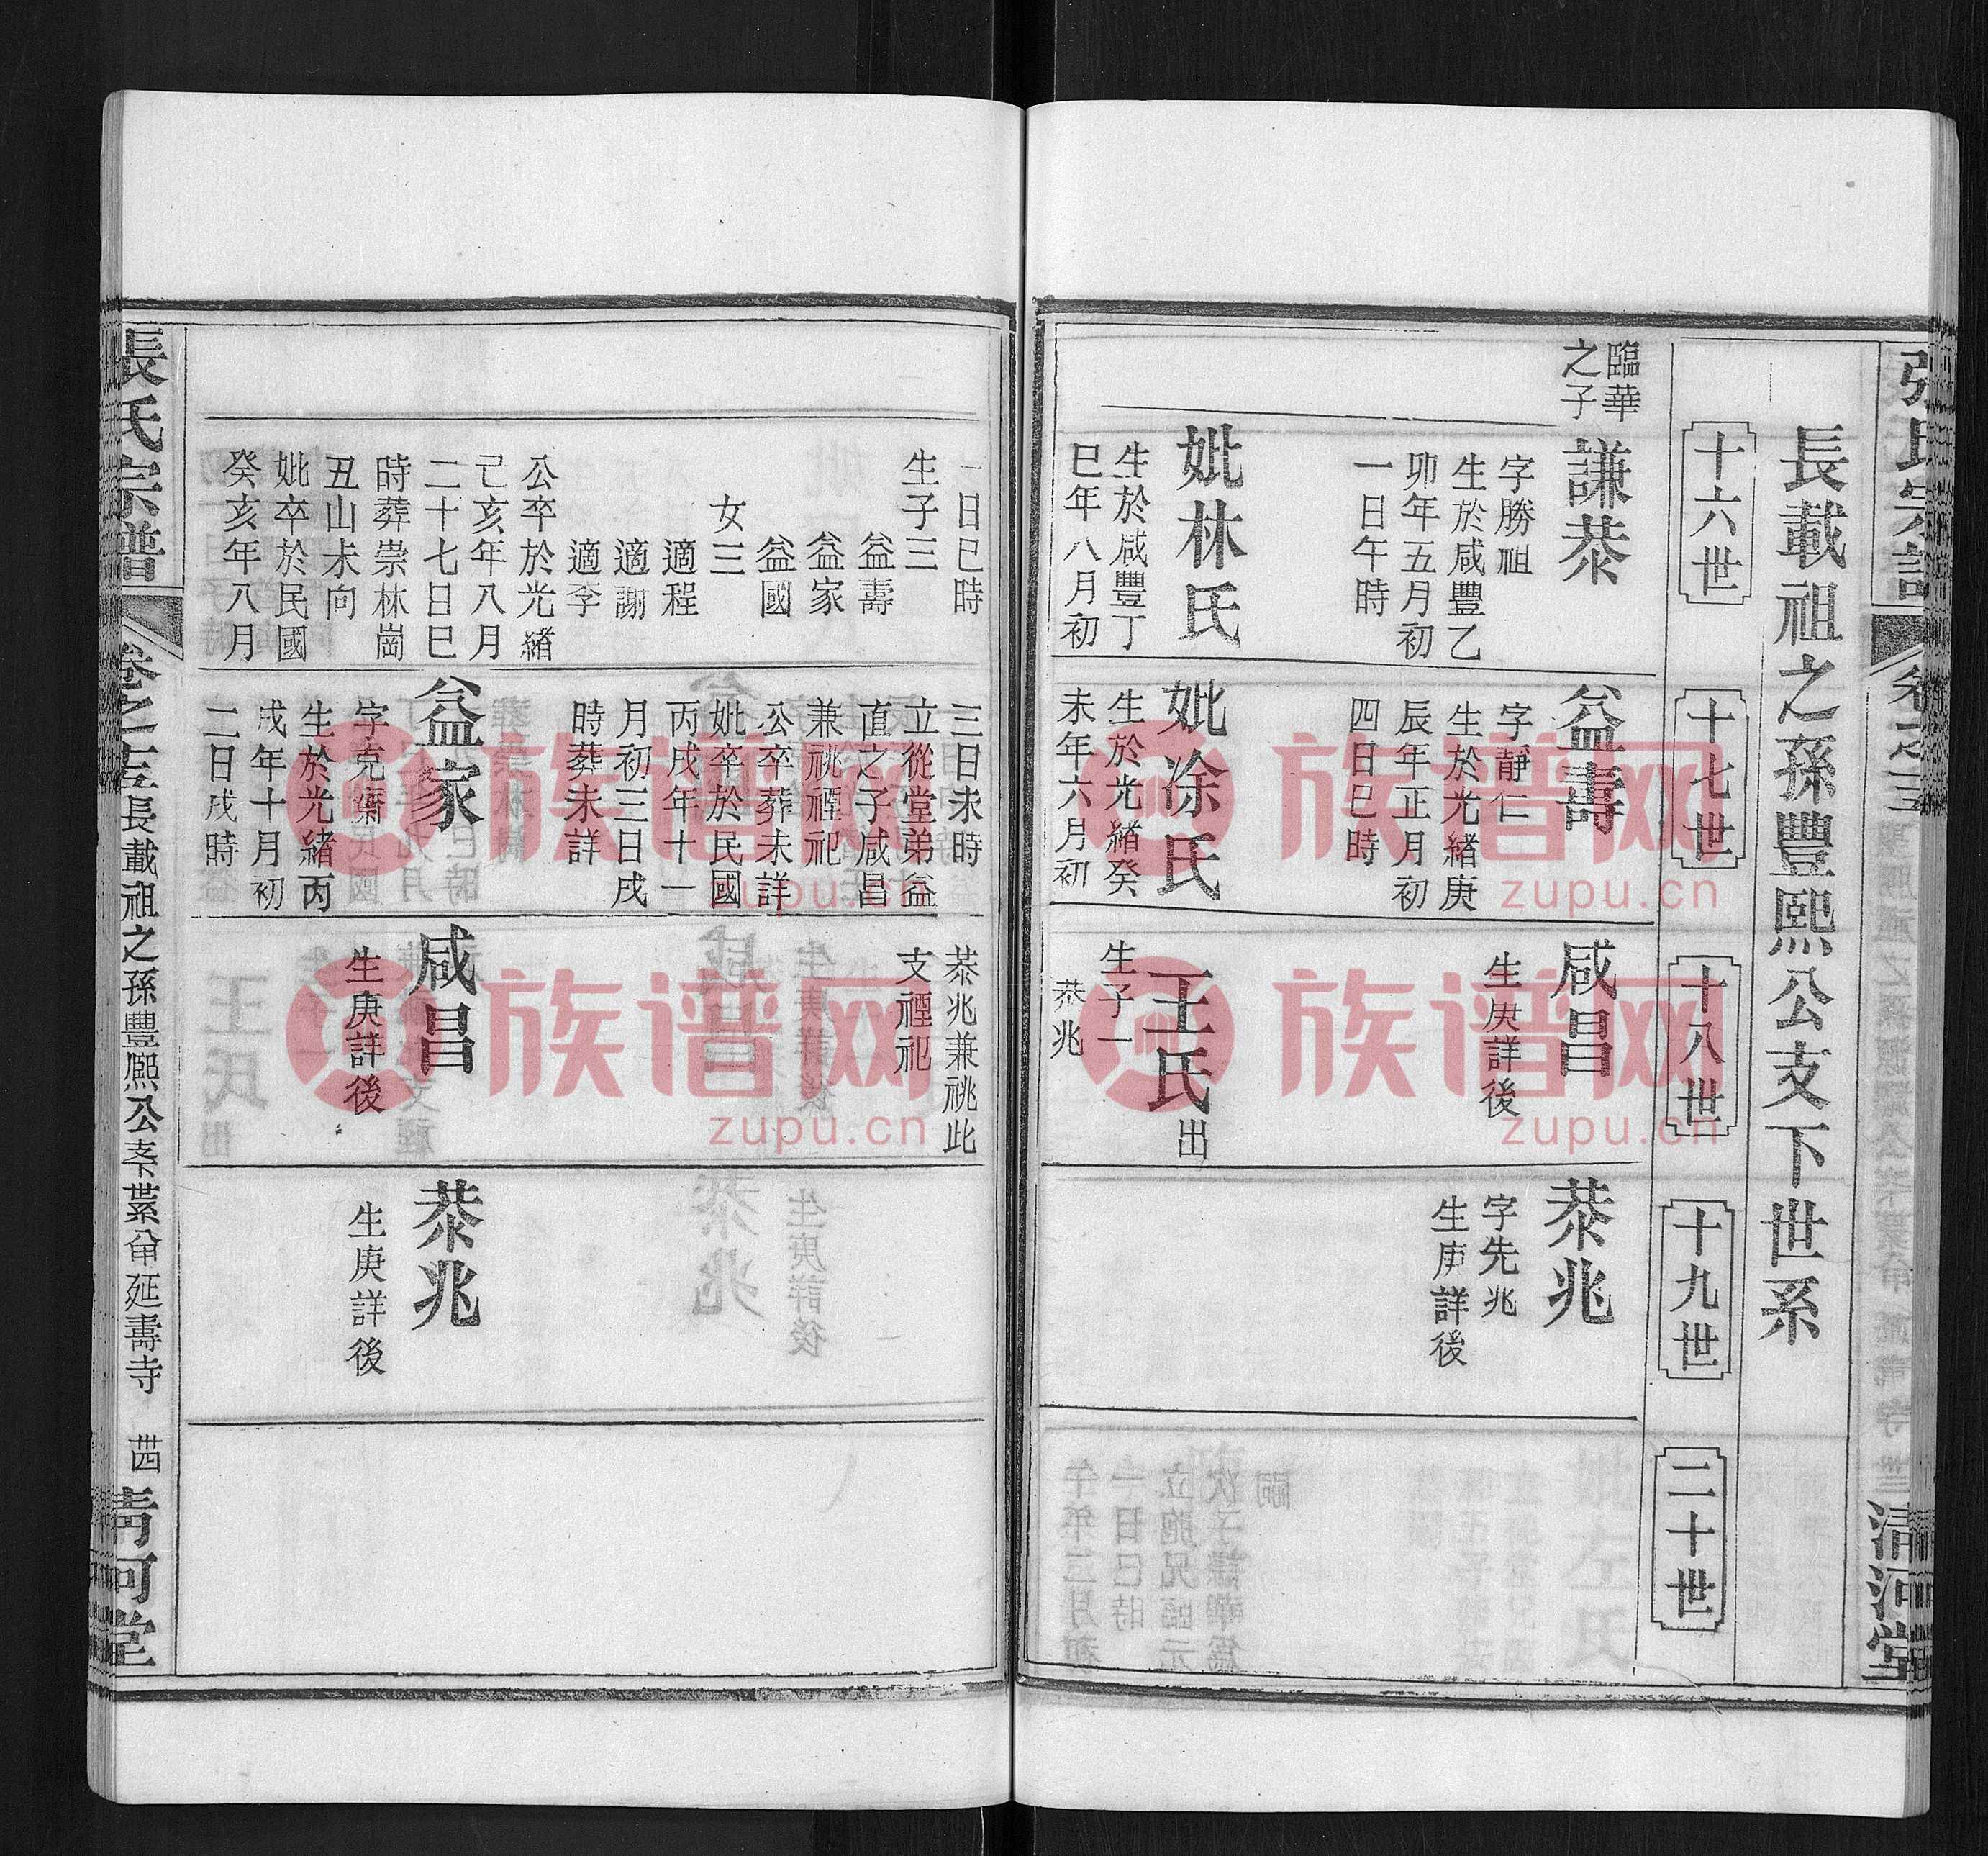 長載祖之孫豐熙公支下世系
十六世
十七世
十八世
十九世
二十世
臨華
之子
謙恭
字勝祖
生於咸豐乙
卯年五月初
一日午時
妣林氏
生於咸豐丁
巳年八月初
益壽
字靜仁
生於光緒庚
辰年正月初
四日巳時
妣涂氏
生於光緒癸
未年六月初
咸昌
生庚詳後
王氏出
生子一
恭兆
恭兆
字先兆
生庚詳後
清河堂
一日巳時
生子三
益壽
益家
益國
女三
適程
適謝
適李
公卒於光緒
己亥年八月
二十七日巳
時葬崇林崗
丑山未向
妣卒於民國
癸亥年八月
三日未時
立從堂弟益
直之子咸昌
兼祧禋祀
公卒葬未詳
妣卒於民國
丙戌年十一
月初三日戌
時葬未詳
益家
字克齋
生於光緒丙
戌年十月初
二日戌時
恭兆兼祧此
支禋祀
咸昌
生庚詳後
恭兆
生庚詳後
張氏宗譜
長載祖之孫豐熙公支下世系
延壽寺
族谱网
zupu.cn
族谱网
zupu.cn
族谱网
zupu.cn
族谱网
zupu.cn